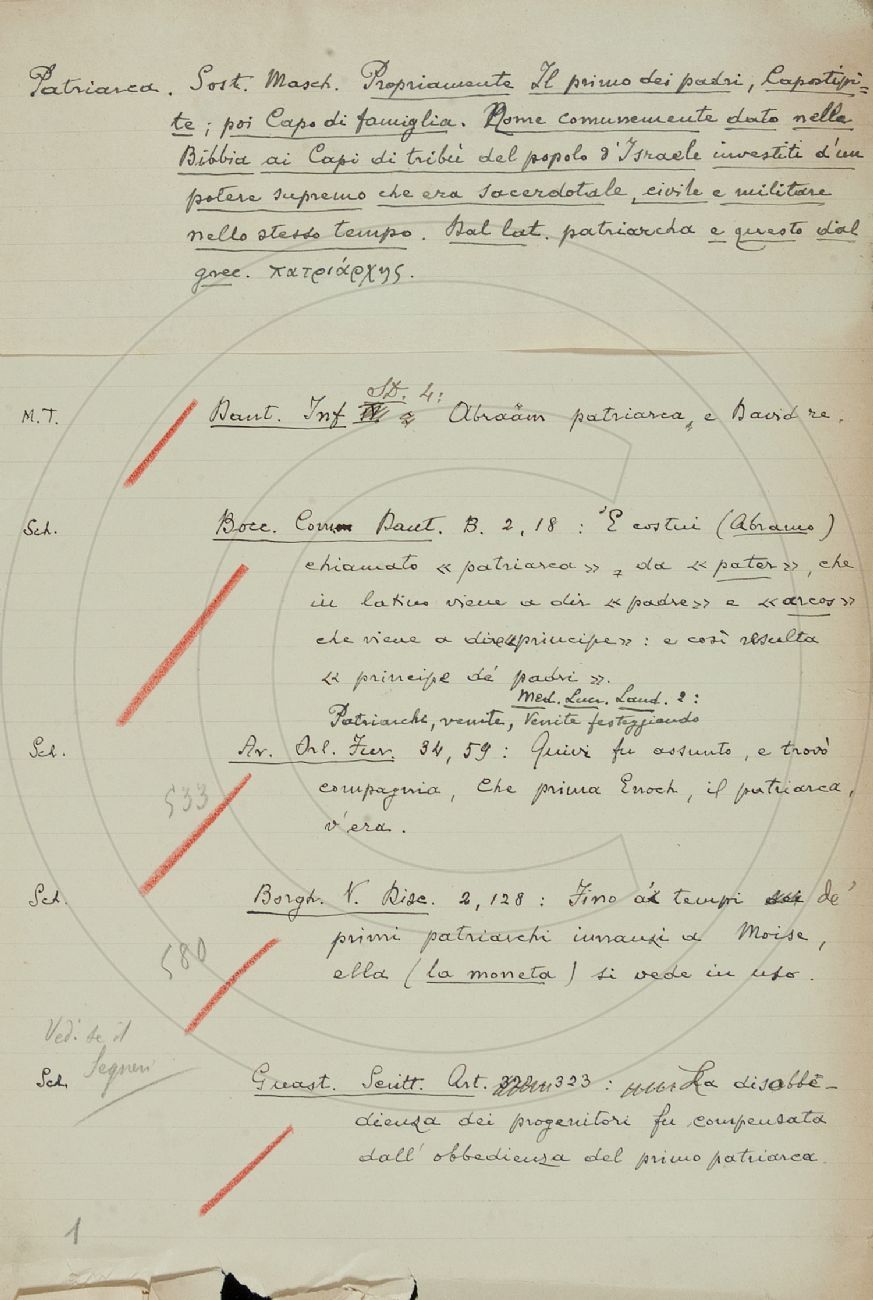 Patriarca. Sost. Masch. Propriamente Il primo dei padri, Capostipi=
te; poi Capo di famiglia. Nome comunemente dato nella
Bibbia ai Capi di tribù del popolo d'Israele investiti d'un
potere supremo che era sacerdotale, civile e militare
nello stesso tempo. Dal lat. patriarcha e questo dal
grec. πατριάρχης.
SD. 4:
M.T. Dant. Inf. Abraàm patriarca, e David re.
Sch. Bocc. Com. Dant. B. 2, 18: E costui (Abramo)
chiamato « patriarca », da « pater », che
in latino viene a dir « padre» e «arcos»
che viene a dire «principe»: e così resulta
« principe de' padri ».
Med. Lucr. Laud. 2:
Patriarchi, venite, Venite festeggiando
Sch. Ar. Orl. Fur. 34, 59: Quivi fu assunto, e trovò
compagnia, Che prima Enoch, il patriarca,
533
v'era.
Sch. Borgh. V. Disc. 2, 128: Fino a' tempi de'
primi patriarchi innanzi a Moise,
580
ella (la moneta) si vede in uso.
Vedi se il
Segneri
Sch. Guast. Scritt. Art. 323: La disobbe-
dienza dei progenitori fu compensata
dall' obbedienza del primo patriarca.
1